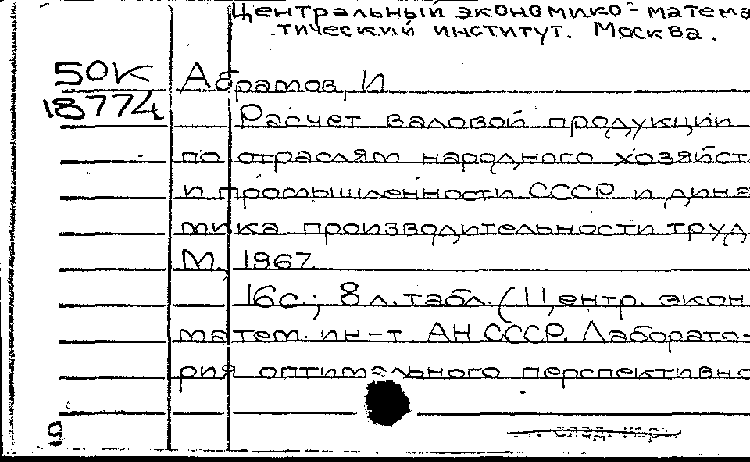 Центральный экономико-матема
тический институт. Москва.
50К Абрамов, И
18774 Расчет валовой продукции
по отраслям народного хозяйст
и промышленности СССР и дина
мика производительности труд
М., 1967.
16с.; 8 л. табл. (Центр. экон
матем. ин-т АН СССР. Лаборато-
рия оптимального перспективно
см. след. кар.